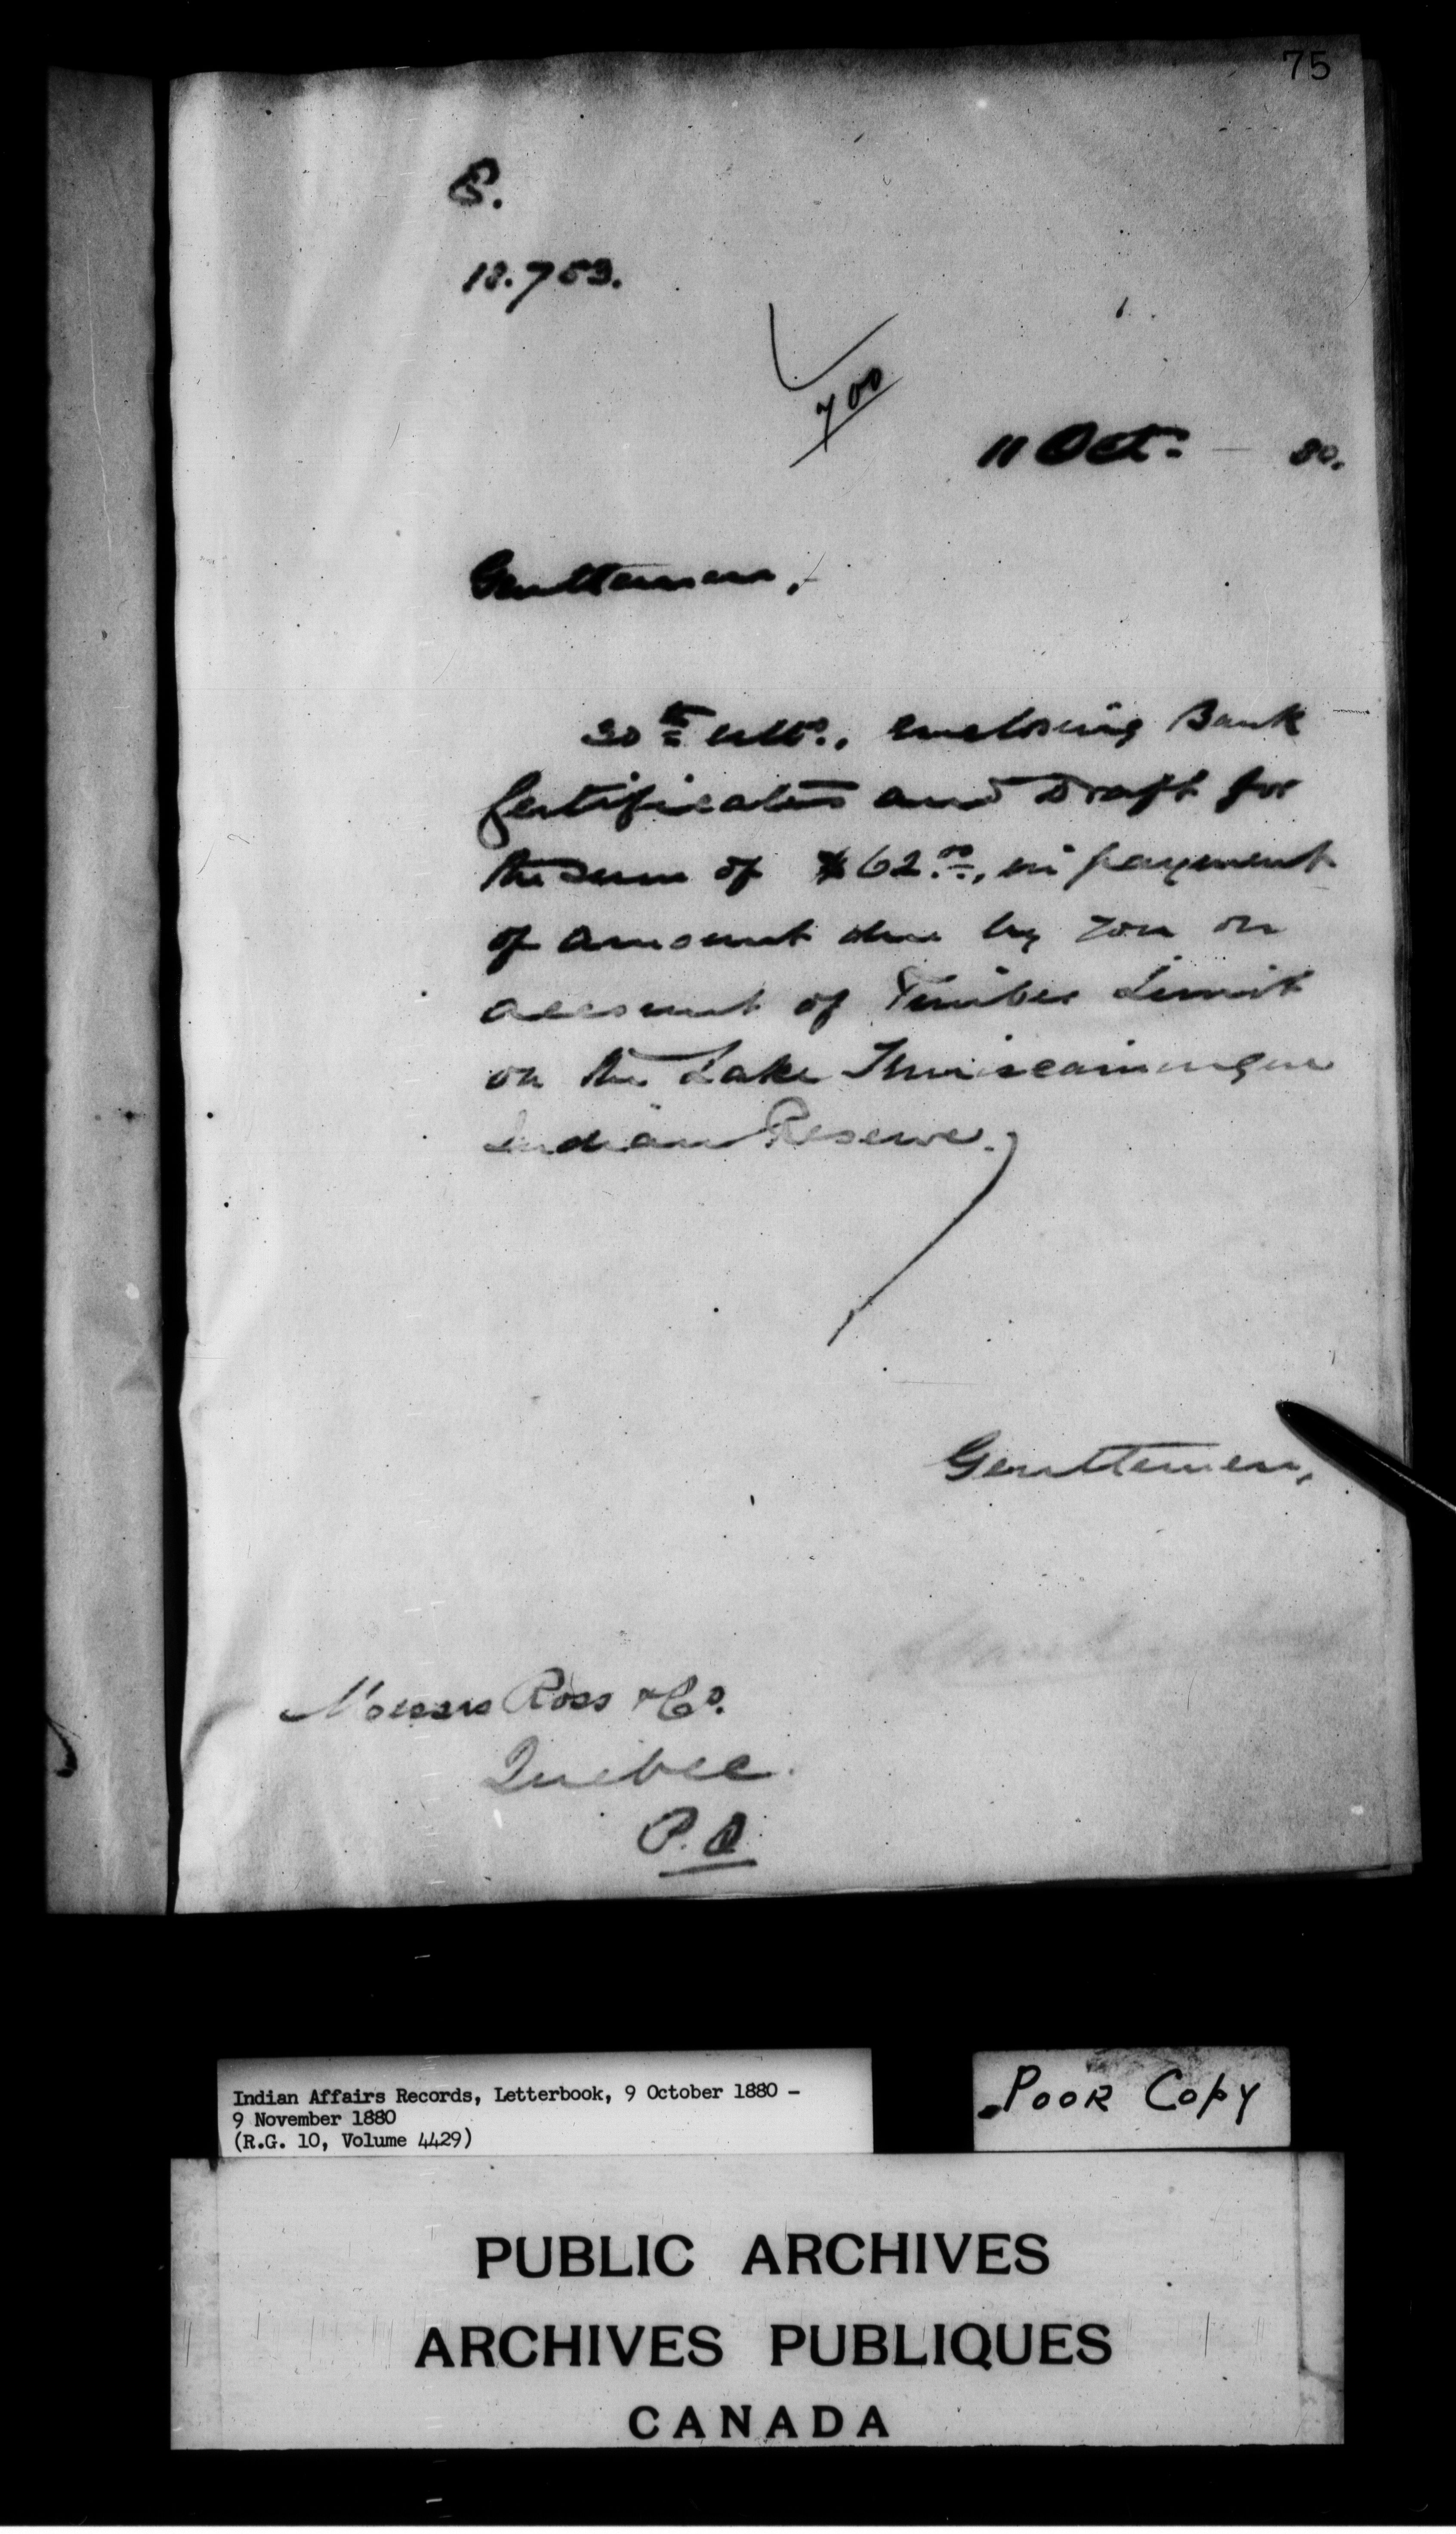 75
12.753.
700
11 Oct. — 80.
Gentlemen,
30th ulto., enclosing Bank
Certificates and Draft for
the sum of $62.00, in payment
of amount due by you on
account of Timber Limit
on the Lake Temiscamingue
Indian Reserve.
Gentlemen,
Messrs Ross & Co.
Quebec.
P.Q
Indian Affairs Records, Letterbook, 9 October 1880 -
9 November 1880
(R.G. 10, Volume 4429)
Poor Copy
PUBLIC ARCHIVES
ARCHIVES PUBLIQUES
CANADA